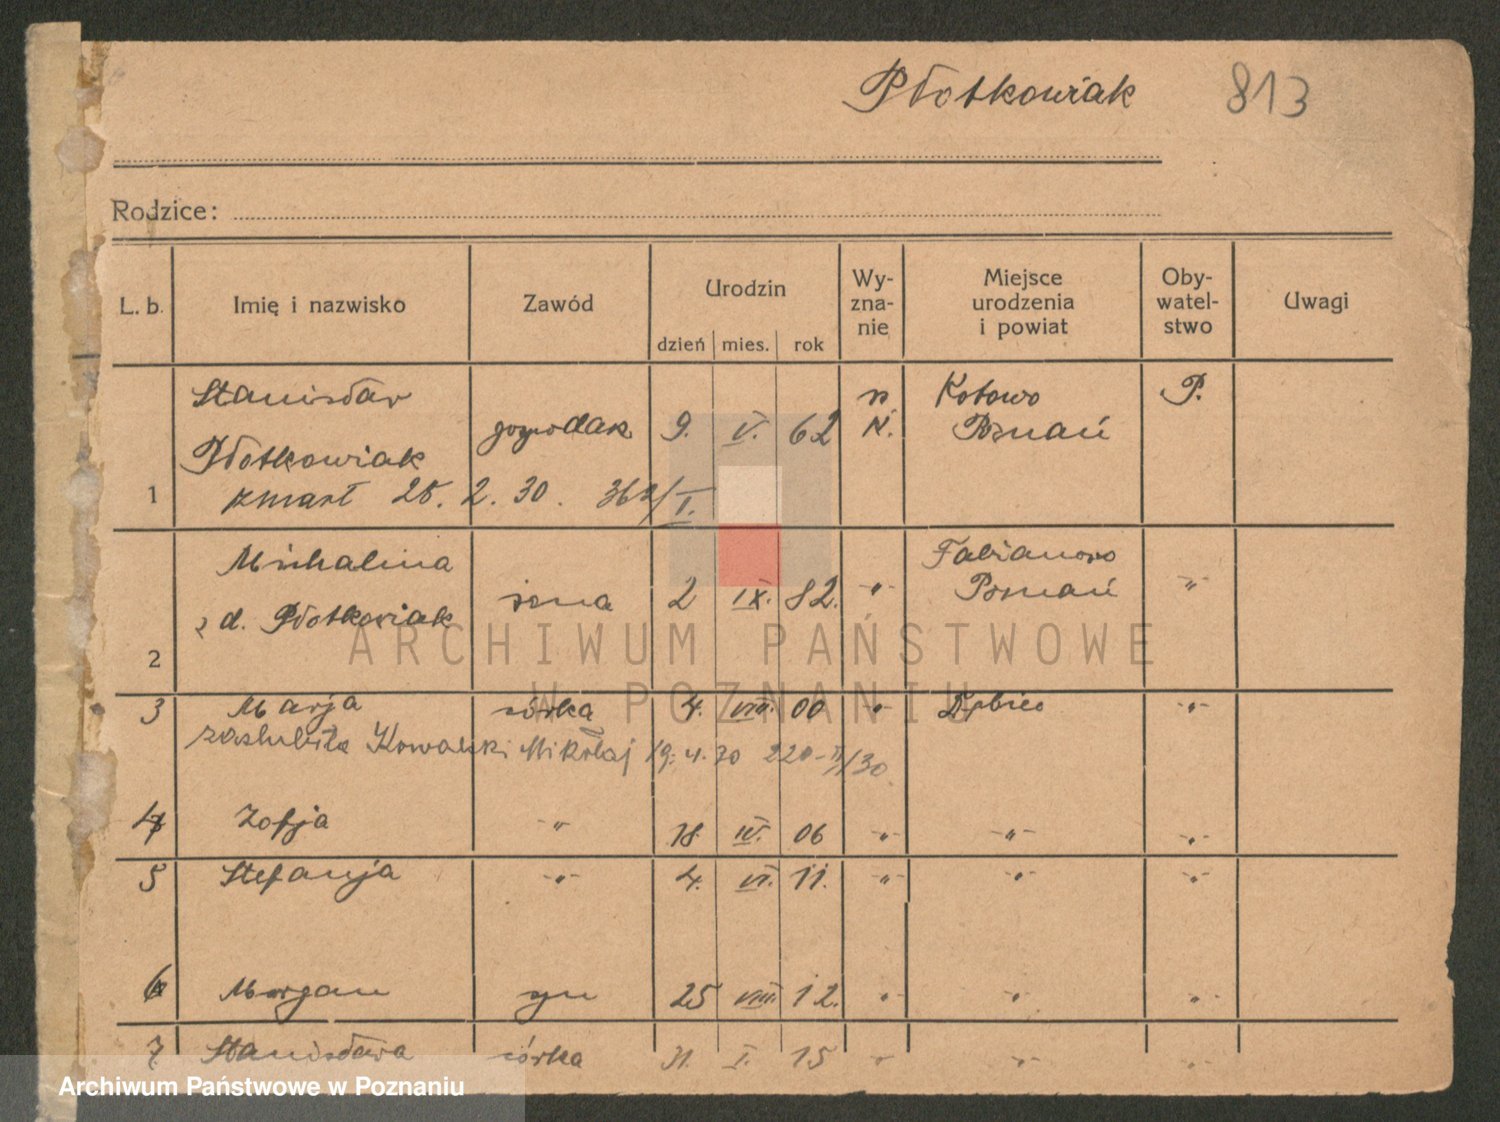 Płotkowiak 813
Rodzice:
L. b. Imię i nazwisko Zawód Urodzin dzień mies. rok Wy-zna-nie Miejsce urodzenia i powiat Oby-watel-stwo Uwagi
Stanisław Kotowo P.
gospodak 9. V. 62 Poznań
Płotkowiak
1 zmarł 25. 2. 30.
Michalina Fabianowo
żona 2 IX. 82. -„- Poznań -„-
z d. Płotkowiak
2
3 Marja córka 4. VIII. 00 -„- Dębiec -„-
zaślubiła Kowalski Mikołaj 19.4.30 220-II/30
4 Zofja -„- 18. IV. 06 -„- -„- -„-
5 Stefanja -„- 4. VI. 11. -„- -„- -„-
6 Morgan syn 25 VIII. 12. -„- -„- -„-
7. Stanisława córka 31. I. 15 -„- -„- -„-
ARCHIWUM PAŃSTWOWE
W POZNANIU
Archiwum Państwowe w Poznaniu